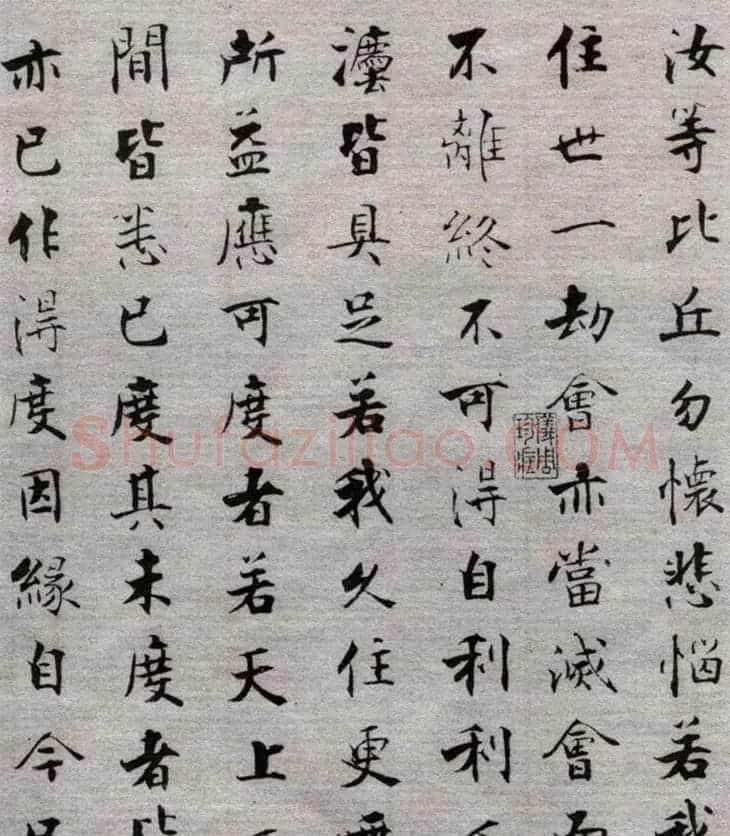 汝等比丘勿懷悲惱若我
住世一劫會亦當滅會而
不離終不可得自利利
灋皆具足若我久住更無
所益應可度者若天上
間皆悉已度其未度者皆
亦已作得度因緣自今
儀周珍藏
Shufaziliao.COM